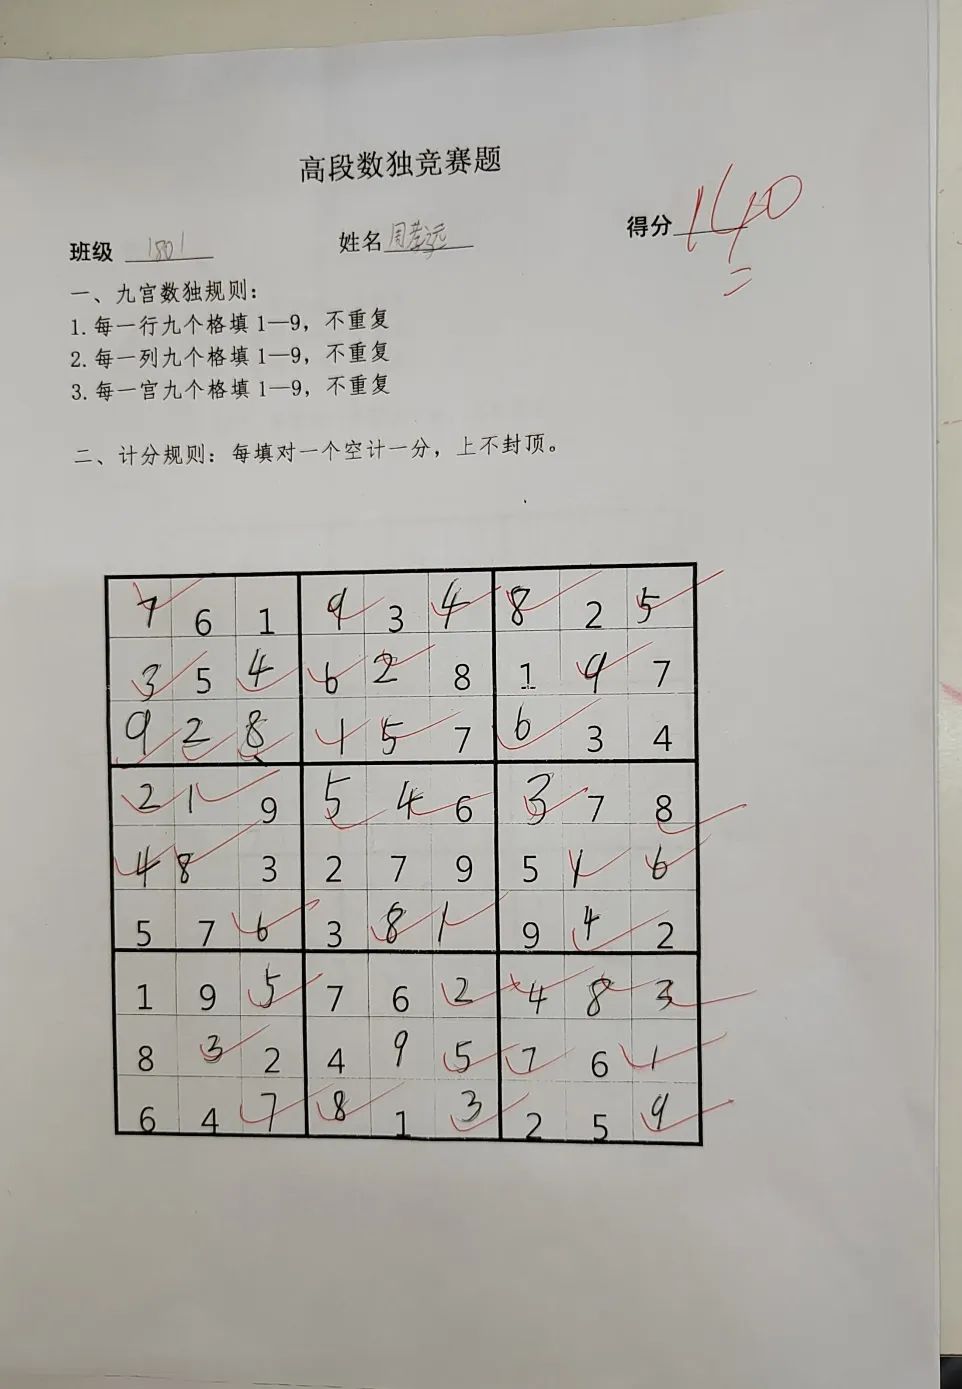 高段数独竞赛题
班级 1801 姓名 周孝远 得分 140
一、九宫数独规则：
1.每一行九个格填1—9，不重复
2.每一列九个格填1—9，不重复
3.每一宫九个格填1—9，不重复
二、计分规则：每填对一个空计一分，上不封顶。
7 6 1 9 3 4 8 2 5
3 5 4 6 2 8 1 9 7
9 2 8 1 5 7 6 3 4
2 1 9 5 4 6 3 7 8
4 8 3 2 7 9 5 1 6
5 7 6 3 8 1 9 4 2
1 9 5 7 6 2 4 8 3
8 3 2 4 9 5 7 6 1
6 4 7 8 1 3 2 5 9